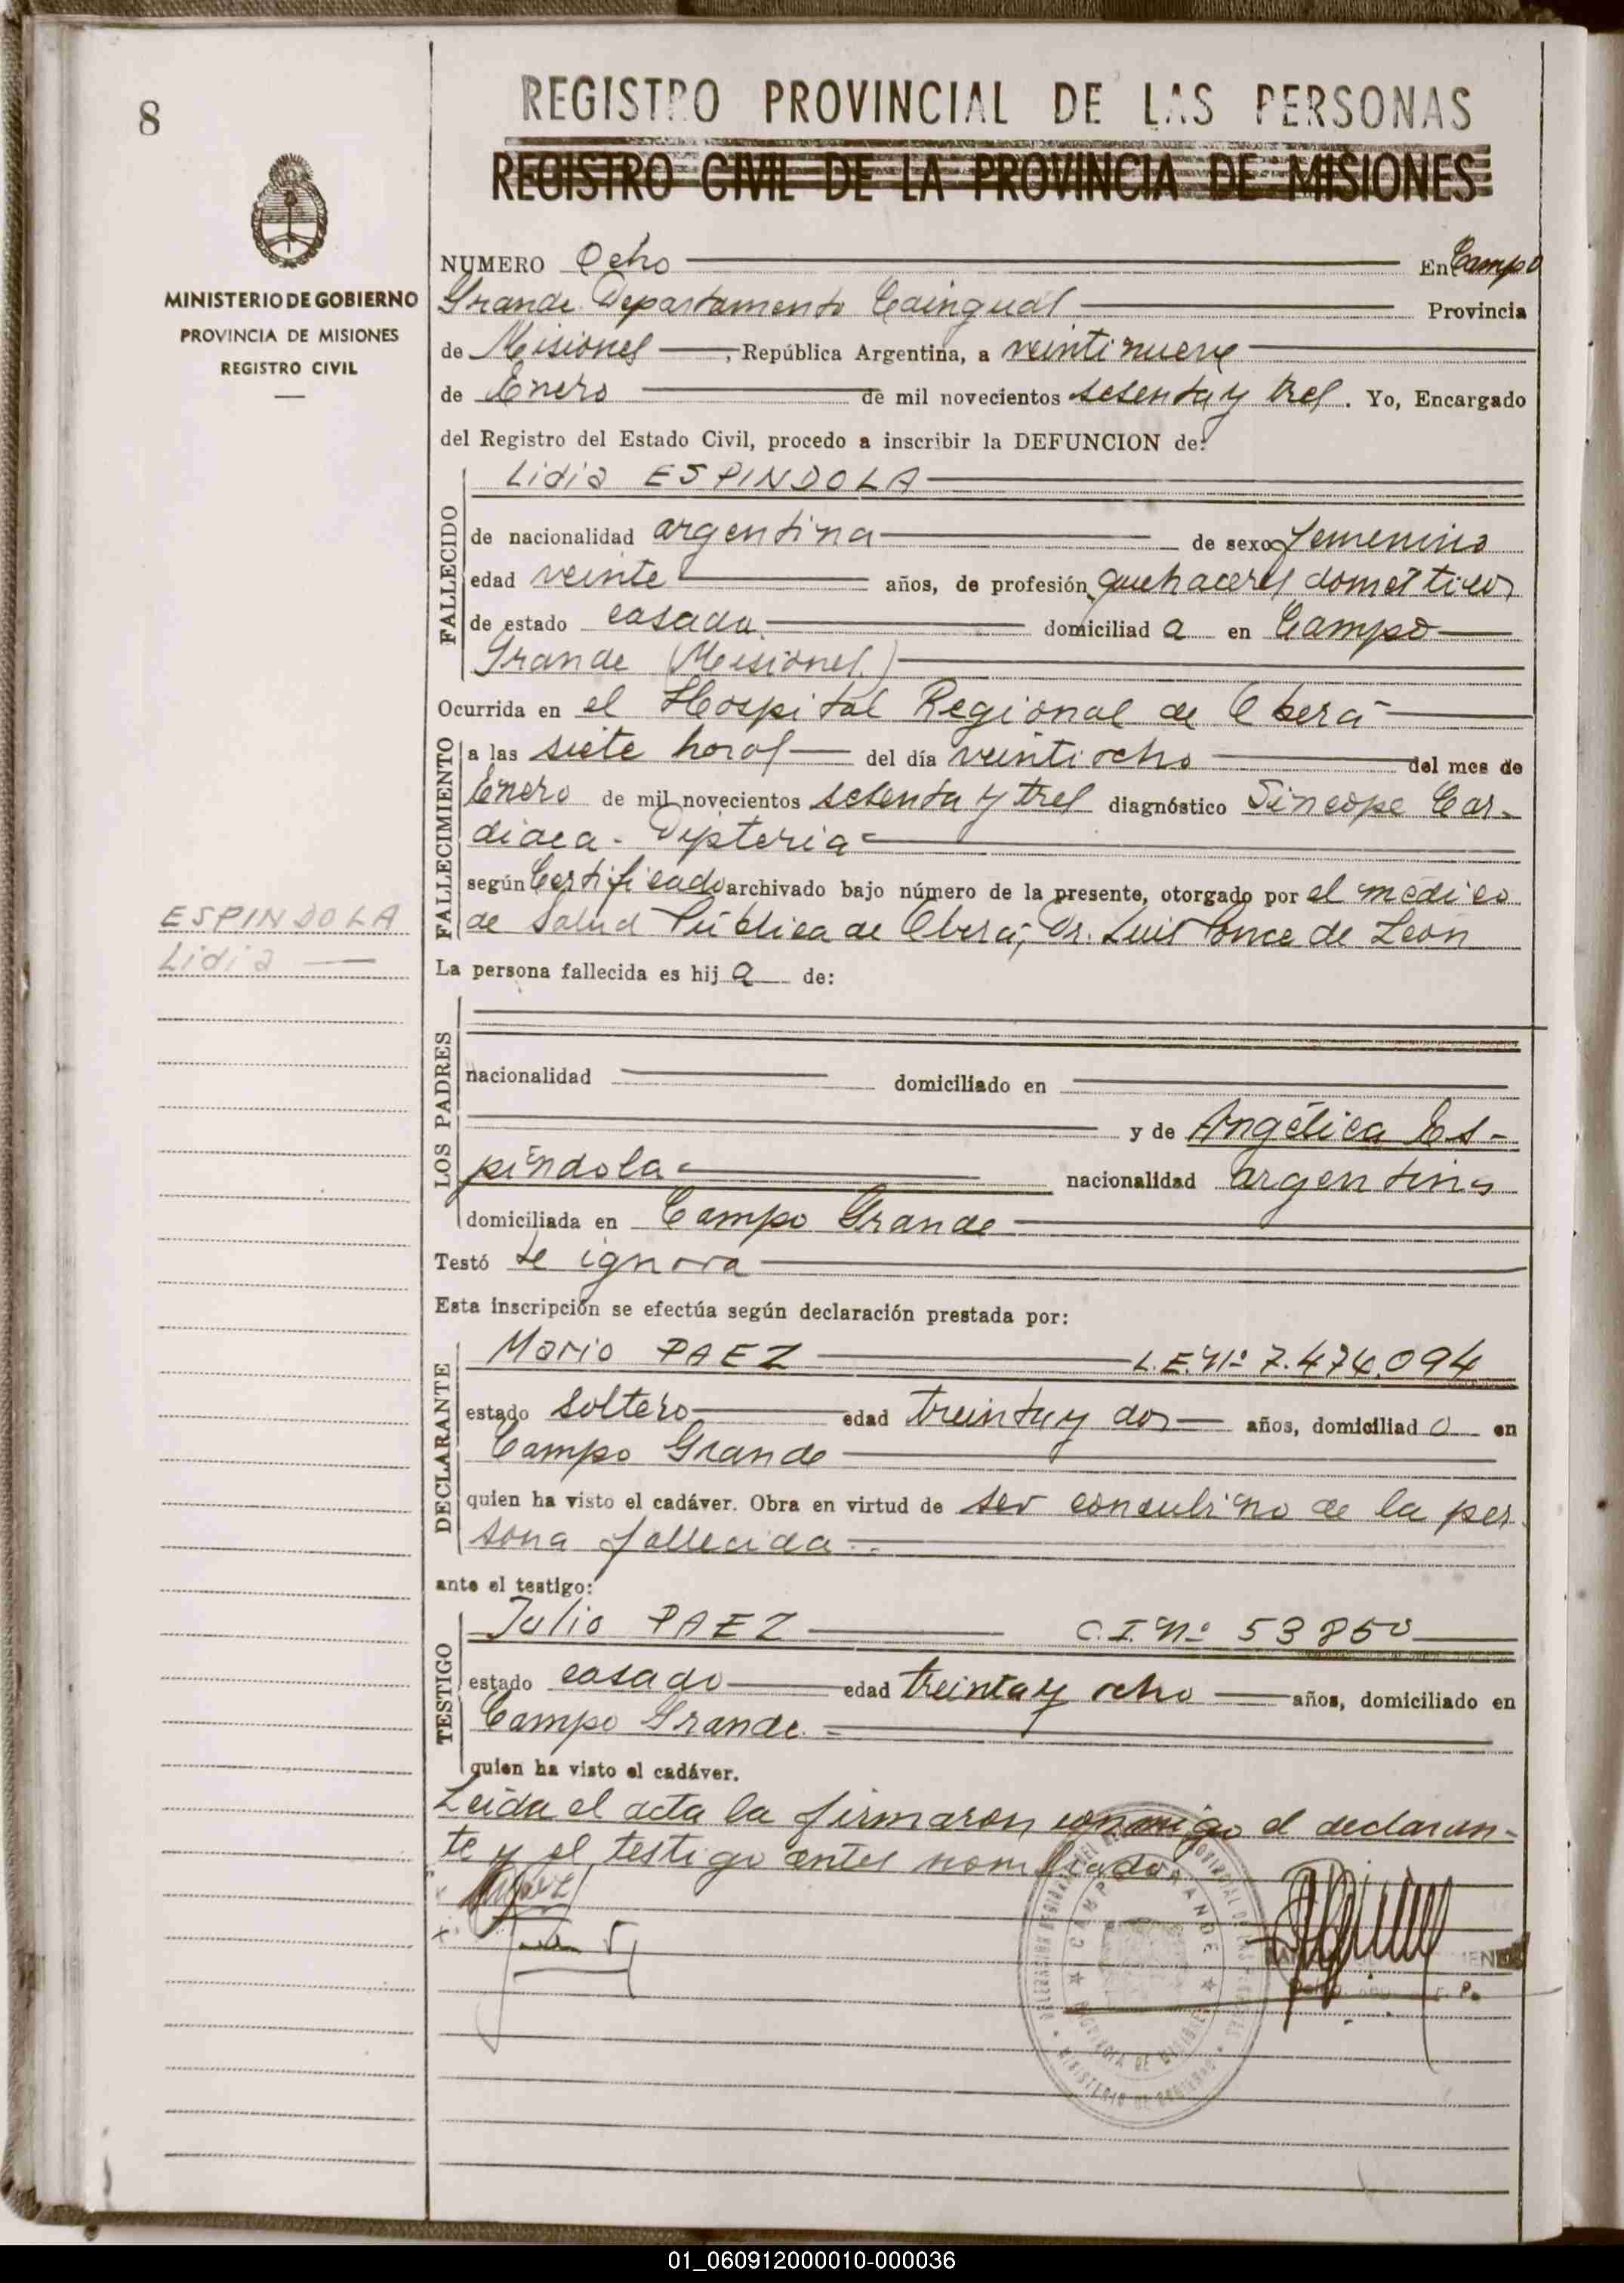 8
REGISTRO PROVINCIAL DE LAS PERSONAS
REGISTRO CIVIL DE LA PROVINCIA DE MISIONES
MINISTERIO DE GOBIERNO
PROVINCIA DE MISIONES
REGISTRO CIVIL
NUMERO Ocho En Campo
Grande Departamento Cainguás Provincia
de Misiones, República Argentina, a veintinueve
de Enero de mil novecientos setenta y tres. Yo, Encargado
del Registro del Estado Civil, procedo a inscribir la DEFUNCION de:
Lidia ESPINDOLA
FALLECIDO
de nacionalidad argentina de sexo femenino
edad veinte años, de profesión quehaceres domésticos
de estado casada domiciliad a en Campo
Grande (Misiones)
Ocurrida en el Hospital Regional de Oberá
FALLECIMIENTO
a las siete horas del día veintiocho del mes de
Enero de mil novecientos setenta y tres diagnóstico Síncope Car-
diaca - Dipteria
según Certificado archivado bajo número de la presente, otorgado por el médico
de Salud Pública de Oberá, Dr. Luis Ponce de León
ESPINDOLA
Lidia
La persona fallecida es hij a de:
LOS PADRES
nacionalidad domiciliado en
y de Angélica Es-
píndola nacionalidad argentina
domiciliada en Campo Grande
Testó se ignora
Esta inscripción se efectúa según declaración prestada por:
DECLARANTE
Mario PAEZ L.E. Nº 7.474.094
estado soltero edad treinta y dos años, domiciliad o en
Campo Grande
quien ha visto el cadáver. Obra en virtud de ser concubino de la per
sona fallecida
ante el testigo:
TESTIGO
Julio PAEZ C.I. Nº 53850
estado casado edad treinta y ocho años, domiciliado en
Campo Grande
quien ha visto el cadáver.
Leída el acta la firmaron conmigo el declaran-
te y el testigo antes nombrado
CAMPO GRANDE
PROVINCIA DE MISIONES
MINISTERIO DE GOBIERNO
01_060912000010-000036